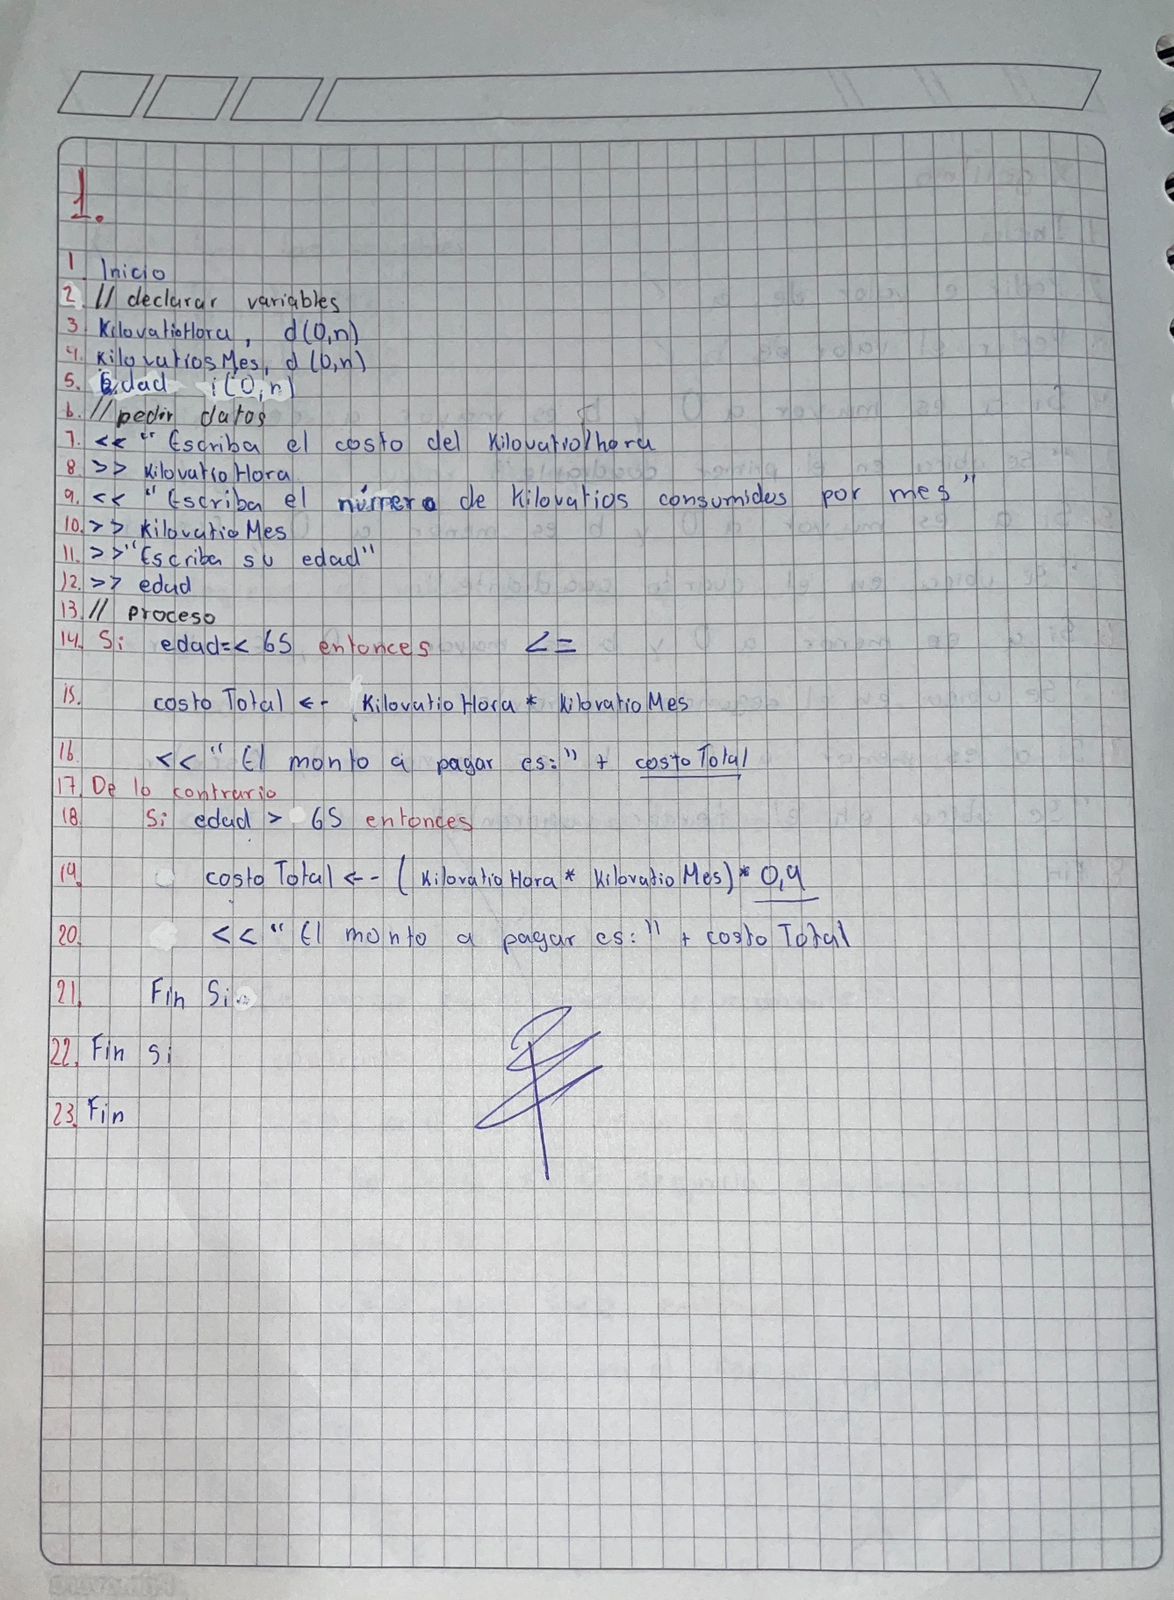 1.
1. Inicio
2. // declarar variables
3. KilovatioHora, d(0,n)
4. KilovatiosMes, d(0,n)
5. Edad i(0,n)
6. // pedir datos
7. << "Escriba el costo del Kilovatio/hora
8. >> KilovatioHora
9. << "Escriba el número de Kilovatios consumidos por mes"
10. >> KilovatioMes
11. >> "Escriba su edad"
12. >> edad
13. // proceso
14. Si edad=< 65 entonces <=
15. costoTotal <- KilovatioHora * KilovatioMes
16. << "El monto a pagar es:" + costoTotal
17. De lo contrario
18. Si edad > 65 entonces
19. costoTotal <- - (KilovatioHora * KilovatioMes) * 0,9
20. << "El monto a pagar es:" + costoTotal
21. Fin Si
22. Fin si
23. Fin